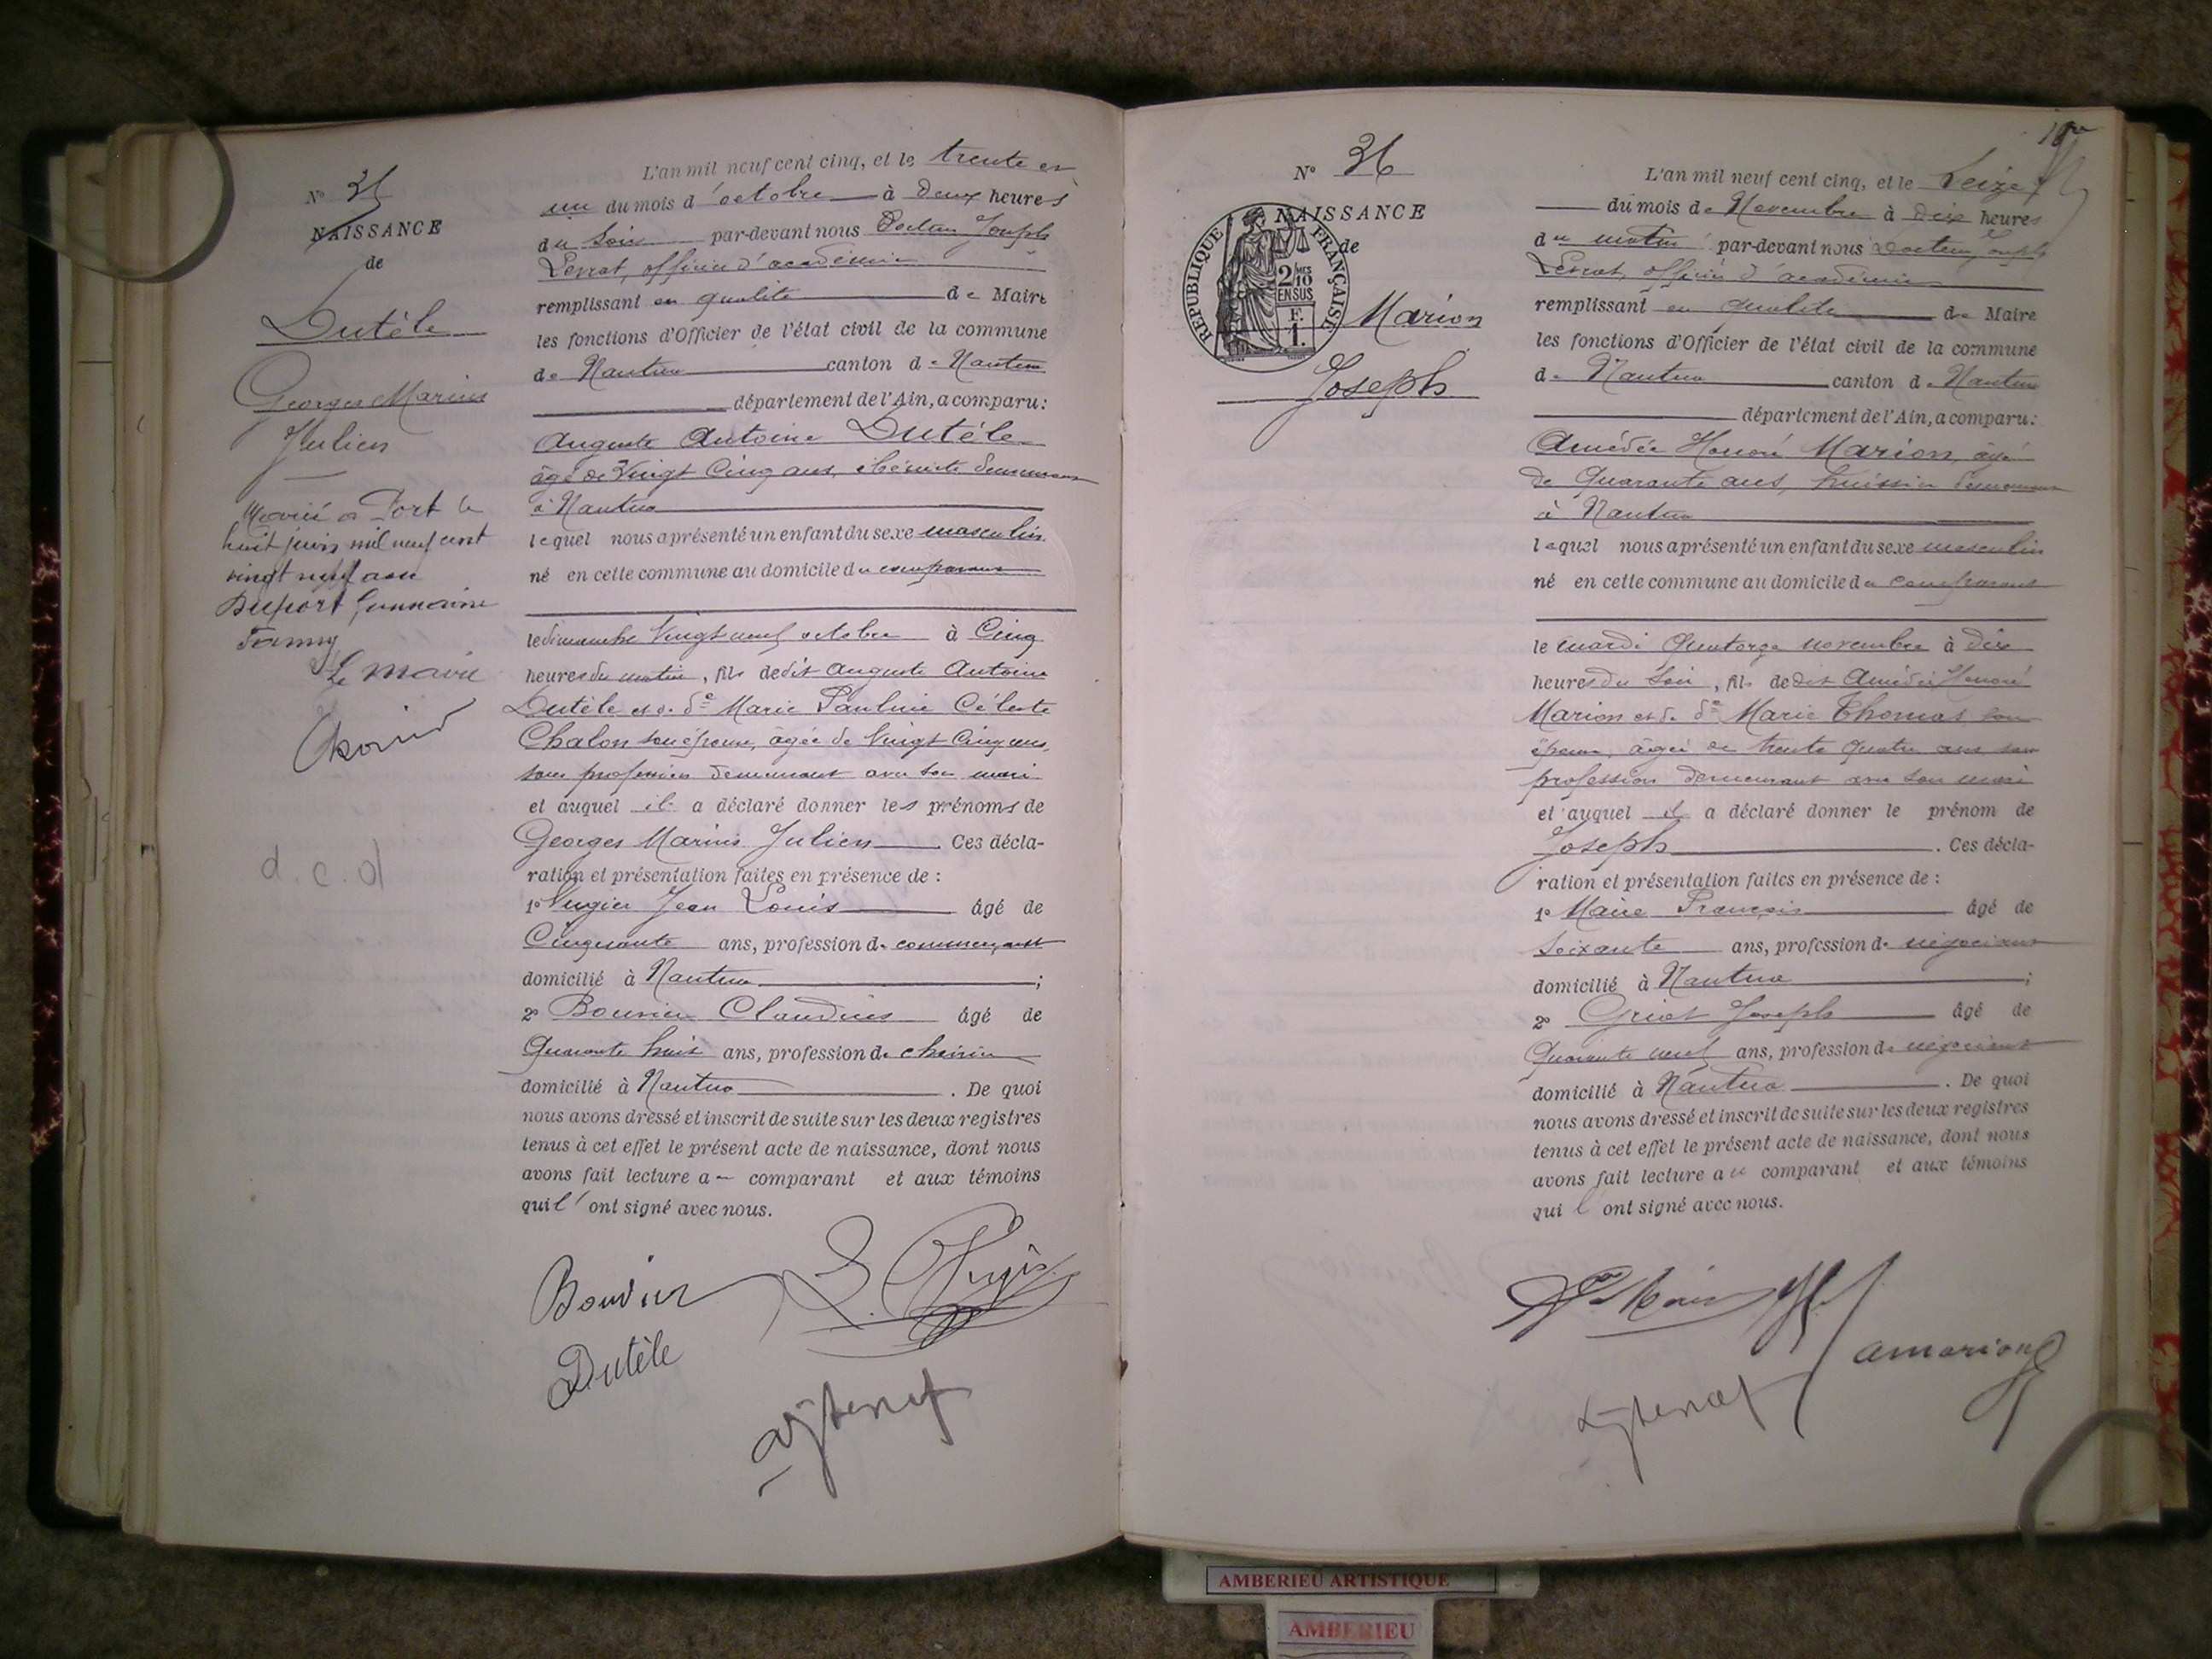 N° 35
NAISSANCE
de
Dutèle
Georges Marius
Julien
Marié à Port le
huit juin mil neuf cent
vingt neuf avec
Duport Germaine
Fanny
Le maire
d.c.d
L'an mil neuf cent cinq, et le trente et
un du mois d'octobre à deux heures
du soir par-devant nous Docteur Joseph
officier d'académie
remplissant en qualité de Maire
les fonctions d'Officier de l'état civil de la commune
de Nantua canton de Nantua
département de l'Ain, a comparu :
Auguste Antoine Dutèle
âgé de vingt cinq ans, ébéniste demeurant
à Nantua
lequel nous a présenté un enfant du sexe masculin
né en cette commune au domicile du comparant
le dimanche vingt neuf octobre à cinq
heures du matin, fils de dit Auguste Antoine
Dutèle et de de Marie Pauline Céleste
Chalon son épouse, agée de vingt cinq ans,
sans profession demeurant avec son mari
et auquel il a déclaré donner les prénoms de
Georges Marius Julien Ces décla-
ration et présentation faites en présence de :
1° Jean Louis âgé de
Cinquante ans, profession de commerçant
domicilié à Nantua ;
2° Bouvier Claudius âgé de
Quarante huit ans, profession de
domicilié à Nantua . De quoi
nous avons dressé et inscrit de suite sur les deux registres
tenus à cet effet le présent acte de naissance, dont nous
avons fait lecture a comparant et aux témoins
qui l' ont signé avec nous.
Bouvier
Dutèle
N° 36
NAISSANCE
de
RÉPUBLIQUE FRANÇAISE
2 MES
10
EN SUS
F.
1.
Marion
Joseph
L'an mil neuf cent cinq, et le seize
du mois de Novembre à dix heures
du matin par-devant nous Docteur Joseph
officier d'académie
remplissant en qualité de Maire
les fonctions d'Officier de l'état civil de la commune
de Nantua canton de Nantua
département de l'Ain, a comparu :
Amédée Honoré Marion, âgé
de Quarante ans, huissier demeurant
à Nantua
lequel nous a présenté un enfant du sexe masculin
né en cette commune au domicile du comparant
le mardi Quatorze novembre à dix
heures du soir, fils de dit Amédée Honoré
Marion et de de Marie Thomas son
épouse, âgée de trente quatre ans sans
profession demeurant avec son mari
et auquel il a déclaré donner le prénom de
Joseph . Ces décla-
ration et présentation faites en présence de :
1° Maire François âgé de
Soixante ans, profession de négociant
domicilié à Nantua ;
2° Joseph âgé de
Quarante neuf ans, profession de négociant
domicilié à Nantua . De quoi
nous avons dressé et inscrit de suite sur les deux registres
tenus à cet effet le présent acte de naissance, dont nous
avons fait lecture au comparant et aux témoins
qui l' ont signé avec nous.
amarion
AMBERIEU ARTISTIQUE
AMBERIEU